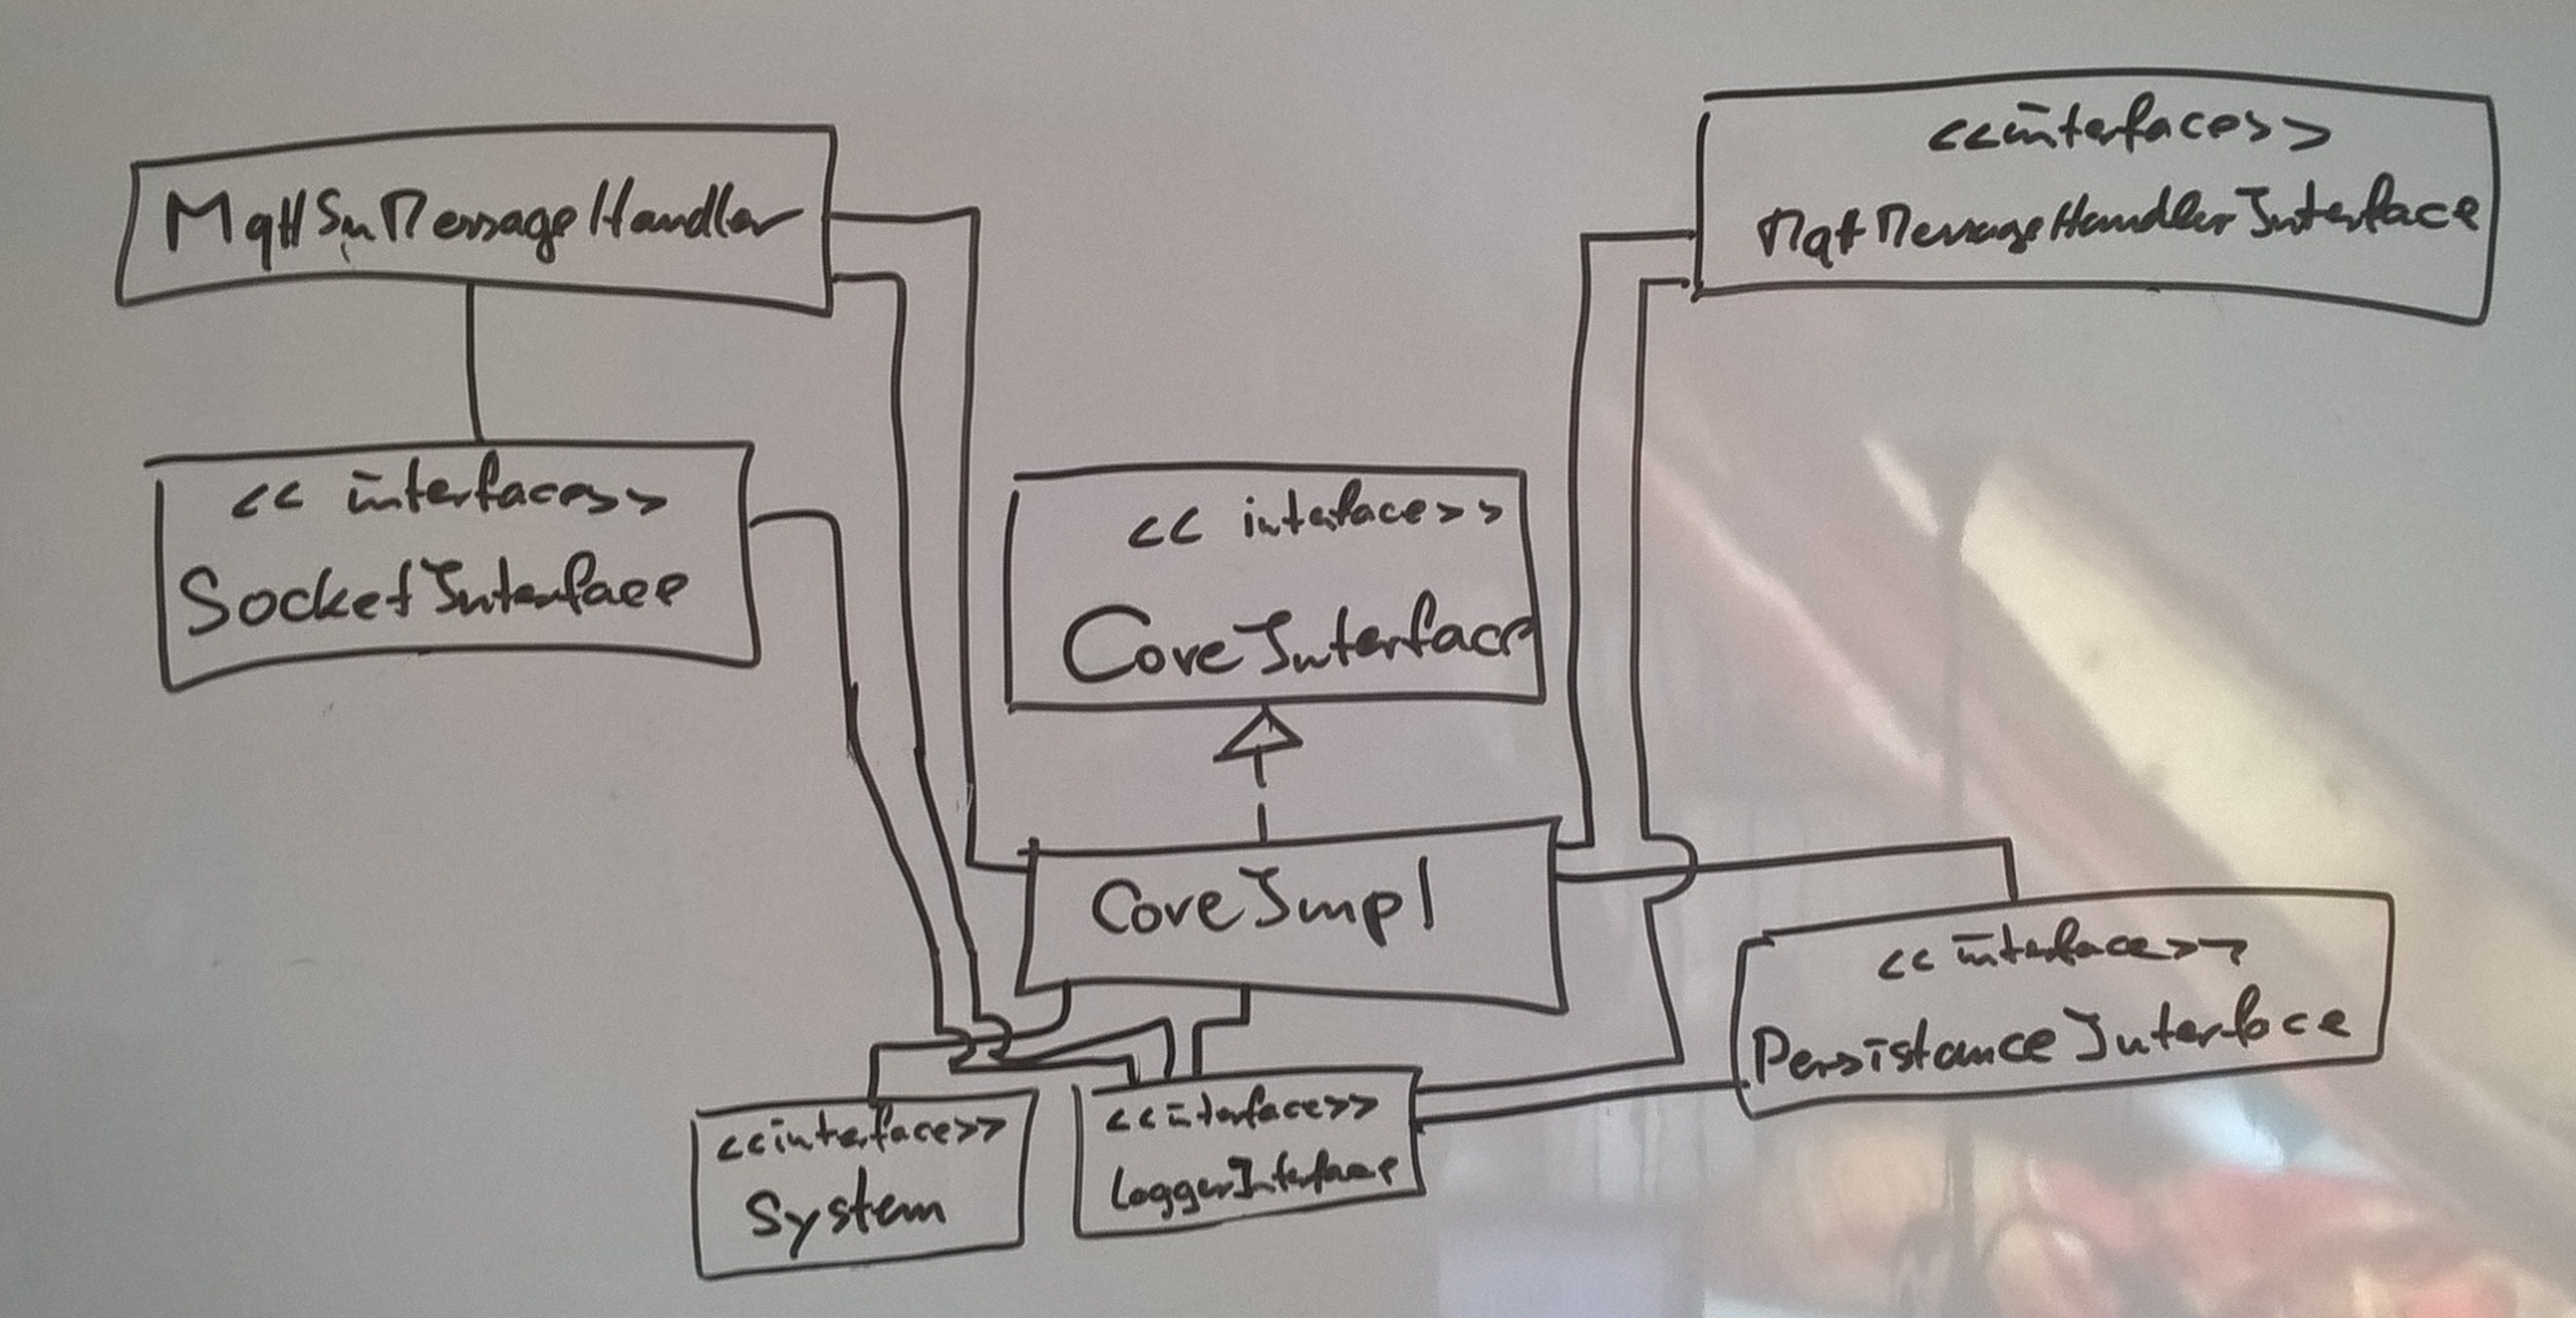 MqttSnMessageHandler
<<interface>>
MqttMessageHandlerInterface
<<interface>>
SocketInterface
<<inteface>>
CoreInterface
CoreImpl
<<interface>>
PersistanceInterface
<<interface>>
System
<<interface>>
LoggerInterface